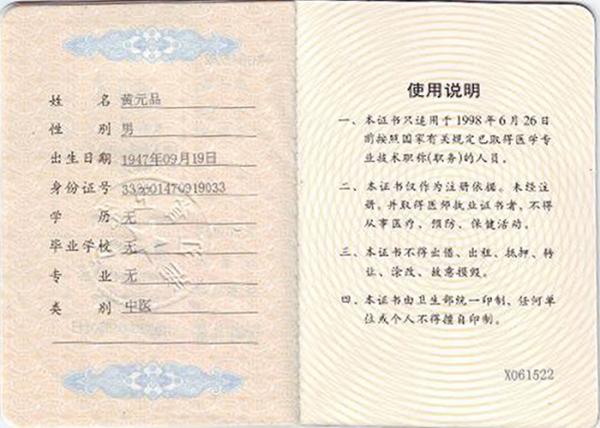 姓 名 黄元品
性 别 男
出生日期 1947年09月19日
身份证号
学 历 无
毕业学校 无
专 业 无
类 别 中医
使用说明
一、本证书只适用于1998年6月26日
前按照国家有关规定已取得医学专
业技术职称(职务)的人员。
二、本证书仅作为注册依据。未经注
册、并取得医师执业证书者,不得
从事医疗、预防、保健活动。
三、本证书不得出借、出租、抵押、转
让、涂改、故意损毁。
四、本证书由卫生部统一印制,任何单
位或个人不得擅自印制。
X061522